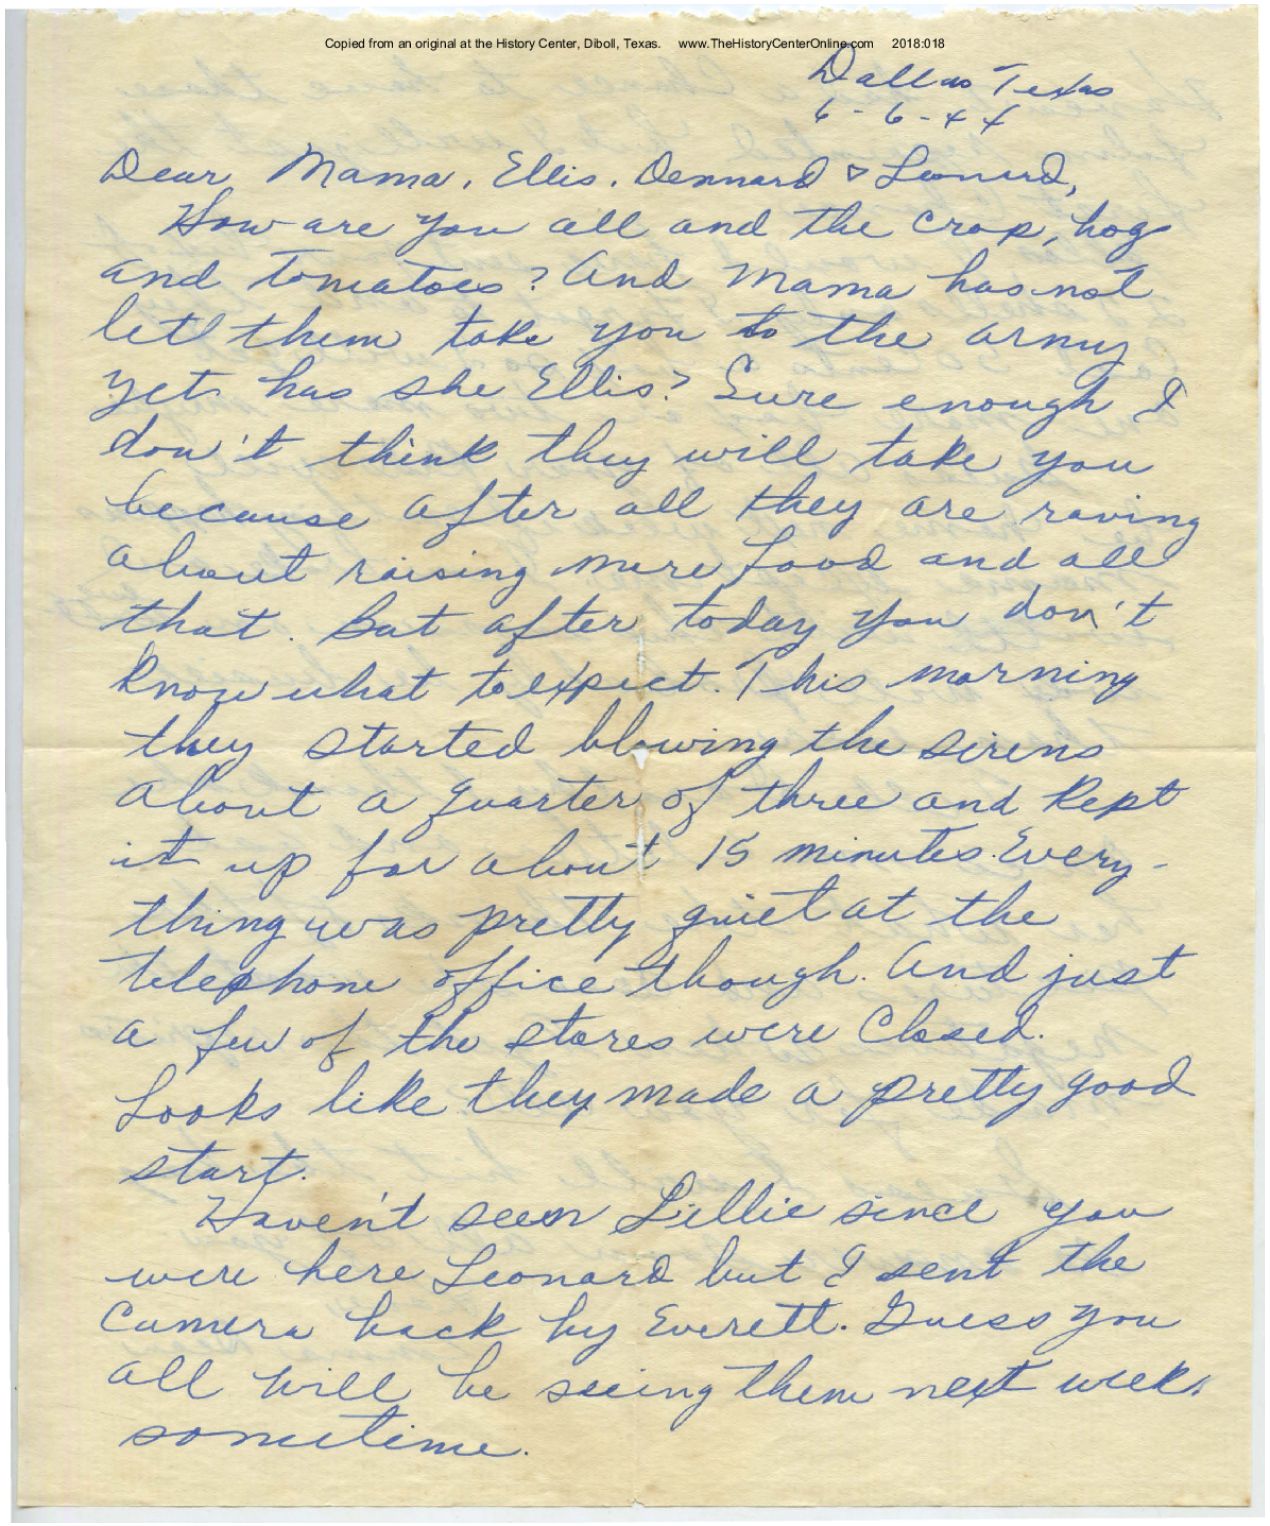 Copied from an original at the History Center, Diboll, Texas. www.TheHistoryCenterOnline.com 2018:018
Dallas Texas
6-6-44
Dear Mama, Ellis, Dennard & Leonard,
How are you all and the crop, hogs
and tomatoes? And Mama has not
let them take you to the army
yet has she Ellis? Sure enough I
don't think they will take you
because after all they are raving
about raising more food and all
that. But after today you don't
know what to expect. This morning
they started blowing the sirens
about a quarter of three and kept
it up for about 15 minutes. Every-
thing was pretty quiet at the
telephone office though. And just
a few of the stores were closed.
Looks like they made a pretty good
start.
Haven't seen Lillie since you
were here Leonard but I sent the
Camera back by Everett. Guess you
all will be seeing them next week
sometime.